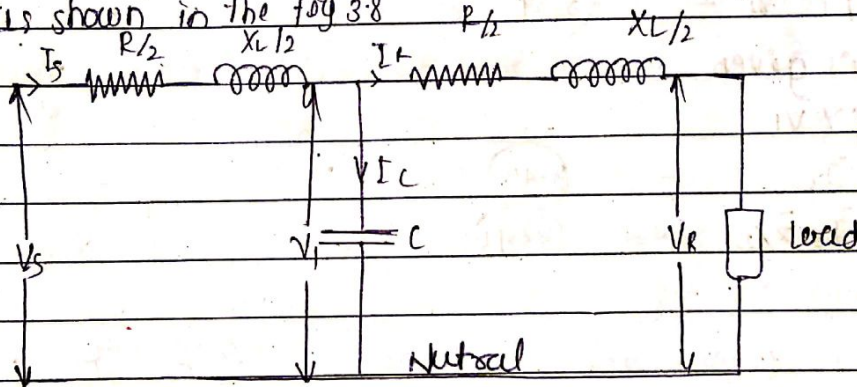 is shown in the fog 3.8
R/2 XL/2 R/2 XL/2
Is Ir
Ic
Vs V1 C VR Load
Nutral